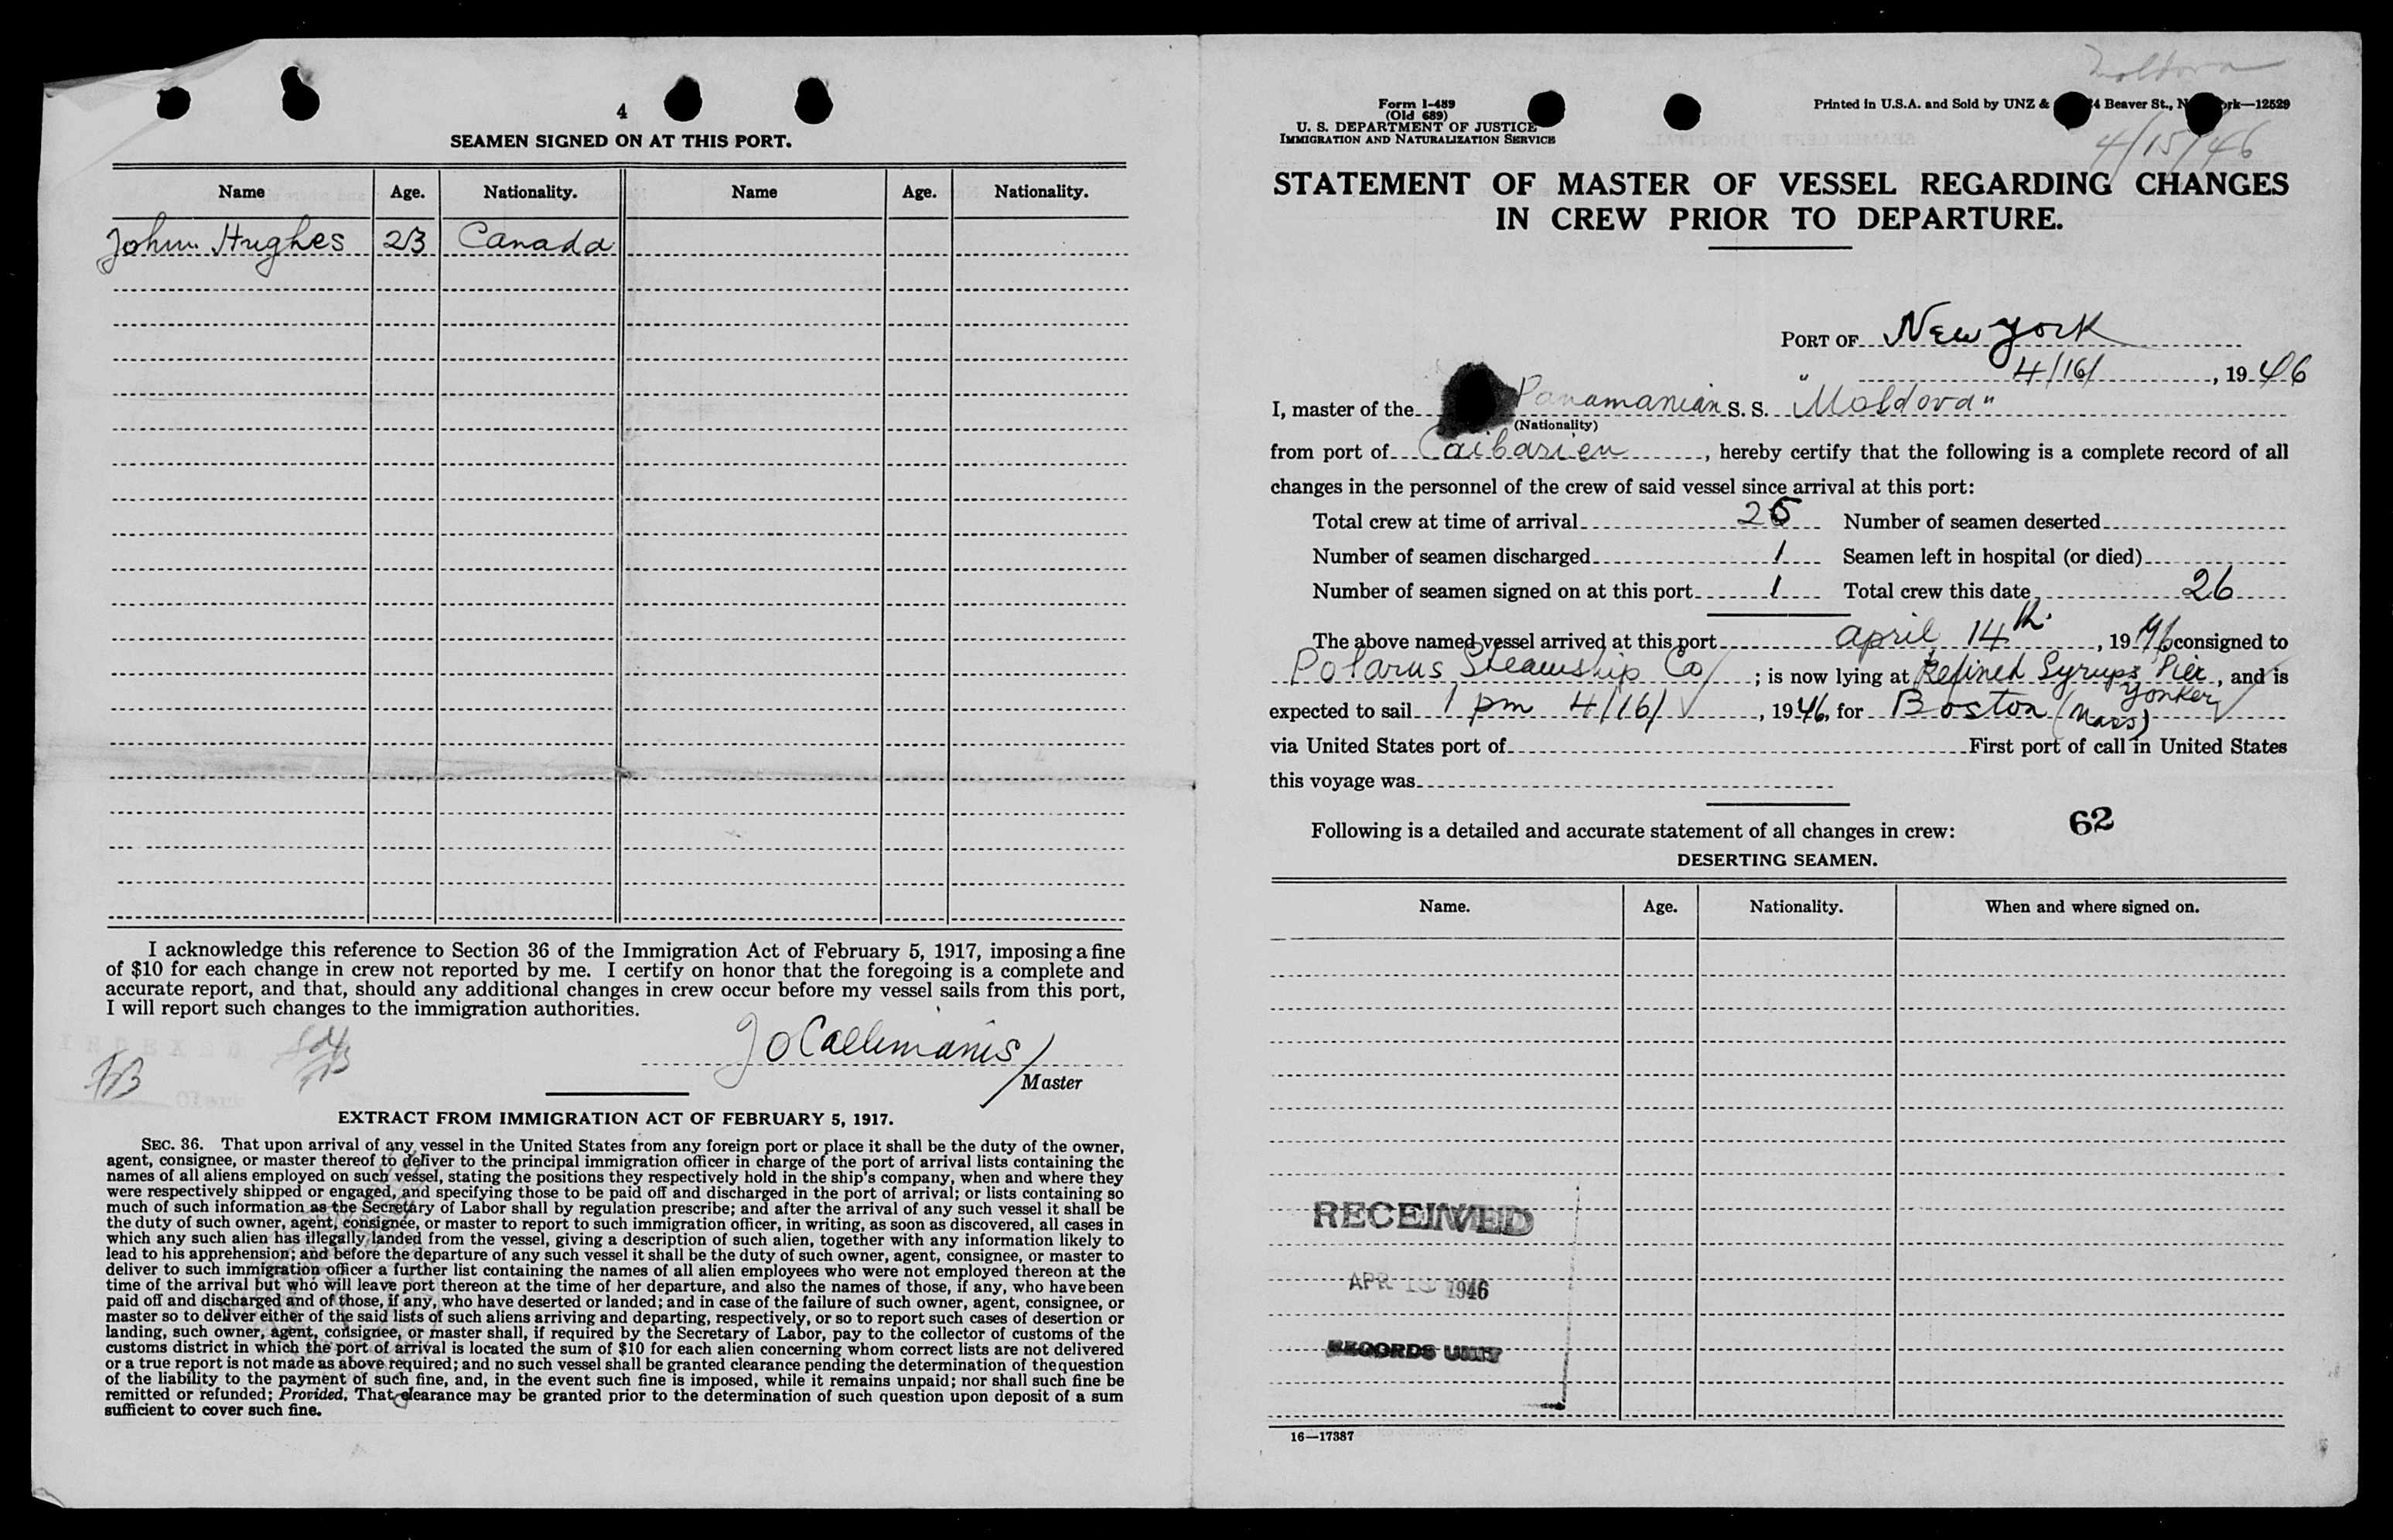 4
SEAMEN SIGNED ON AT THIS PORT.
Name Age. Nationality. Name Age. Nationality.
John Hughes 23 Canada
I acknowledge this reference to Section 36 of the Immigration Act of February 5, 1917, imposing a fine
of $10 for each change in crew not reported by me. I certify on honor that the foregoing is a complete and
accurate report, and that, should any additional changes in crew occur before my vessel sails from this port,
I will report such changes to the immigration authorities.
Master
EXTRACT FROM IMMIGRATION ACT OF FEBRUARY 5, 1917.
SEC. 36. That upon arrival of any vessel in the United States from any foreign port or place it shall be the duty of the owner,
agent, consignee, or master thereof to deliver to the principal immigration officer in charge of the port of arrival lists containing the
names of all aliens employed on such vessel, stating the positions they respectively hold in the ship's company, when and where they
were respectively shipped or engaged, and specifying those to be paid off and discharged in the port of arrival; or lists containing so
much of such information as the Secretary of Labor shall by regulation prescribe; and after the arrival of any such vessel it shall be
the duty of such owner, agent, consignee, or master to report to such immigration officer, in writing, as soon as discovered, all cases in
which any such alien has illegally landed from the vessel, giving a description of such alien, together with any information likely to
lead to his apprehension; and before the departure of any such vessel it shall be the duty of such owner, agent, consignee, or master to
deliver to such immigration officer a further list containing the names of all alien employees who were not employed thereon at the
time of the arrival but who will leave port thereon at the time of her departure, and also the names of those, if any, who have been
paid off and discharged and of those, if any, who have deserted or landed; and in case of the failure of such owner, agent, consignee, or
master so to deliver either of the said lists of such aliens arriving and departing, respectively, or so to report such cases of desertion or
landing, such owner, agent, consignee, or master shall, if required by the Secretary of Labor, pay to the collector of customs of the
customs district in which the port of arrival is located the sum of $10 for each alien concerning whom correct lists are not delivered
or a true report is not made as above required; and no such vessel shall be granted clearance pending the determination of the question
of the liability to the payment of such fine, and, in the event such fine is imposed, while it remains unpaid; nor shall such fine be
remitted or refunded; Provided, That clearance may be granted prior to the determination of such question upon deposit of a sum
sufficient to cover such fine.
Moldova
4/15/46
Form I-489
(Old 689)
U. S. DEPARTMENT OF JUSTICE
IMMIGRATION AND NATURALIZATION SERVICE
Printed in U.S.A. and Sold by UNZ & 4 Beaver St., N ork—12529
STATEMENT OF MASTER OF VESSEL REGARDING CHANGES
IN CREW PRIOR TO DEPARTURE.
PORT OF New York
4/16/, 1946
I, master of the Panamanian S. S. "Moldova"
(Nationality)
from port of Caibarien, hereby certify that the following is a complete record of all
changes in the personnel of the crew of said vessel since arrival at this port:
Total crew at time of arrival Number of seamen deserted
Number of seamen discharged 1 Seamen left in hospital (or died)
Number of seamen signed on at this port 1 Total crew this date 26
The above named vessel arrived at this port april 14th, 1946 consigned to
Polarus Steamship Co; is now lying at Refined Syrups Pier Yonkers, and is
expected to sail 1 pm 4/16/, 1946, for Boston (Mass)
via United States port of First port of call in United States
this voyage was
Following is a detailed and accurate statement of all changes in crew:
62
DESERTING SEAMEN.
Name. Age. Nationality. When and where signed on.
RECEIVED
APR 1946
RECORDS UNIT
16—17387